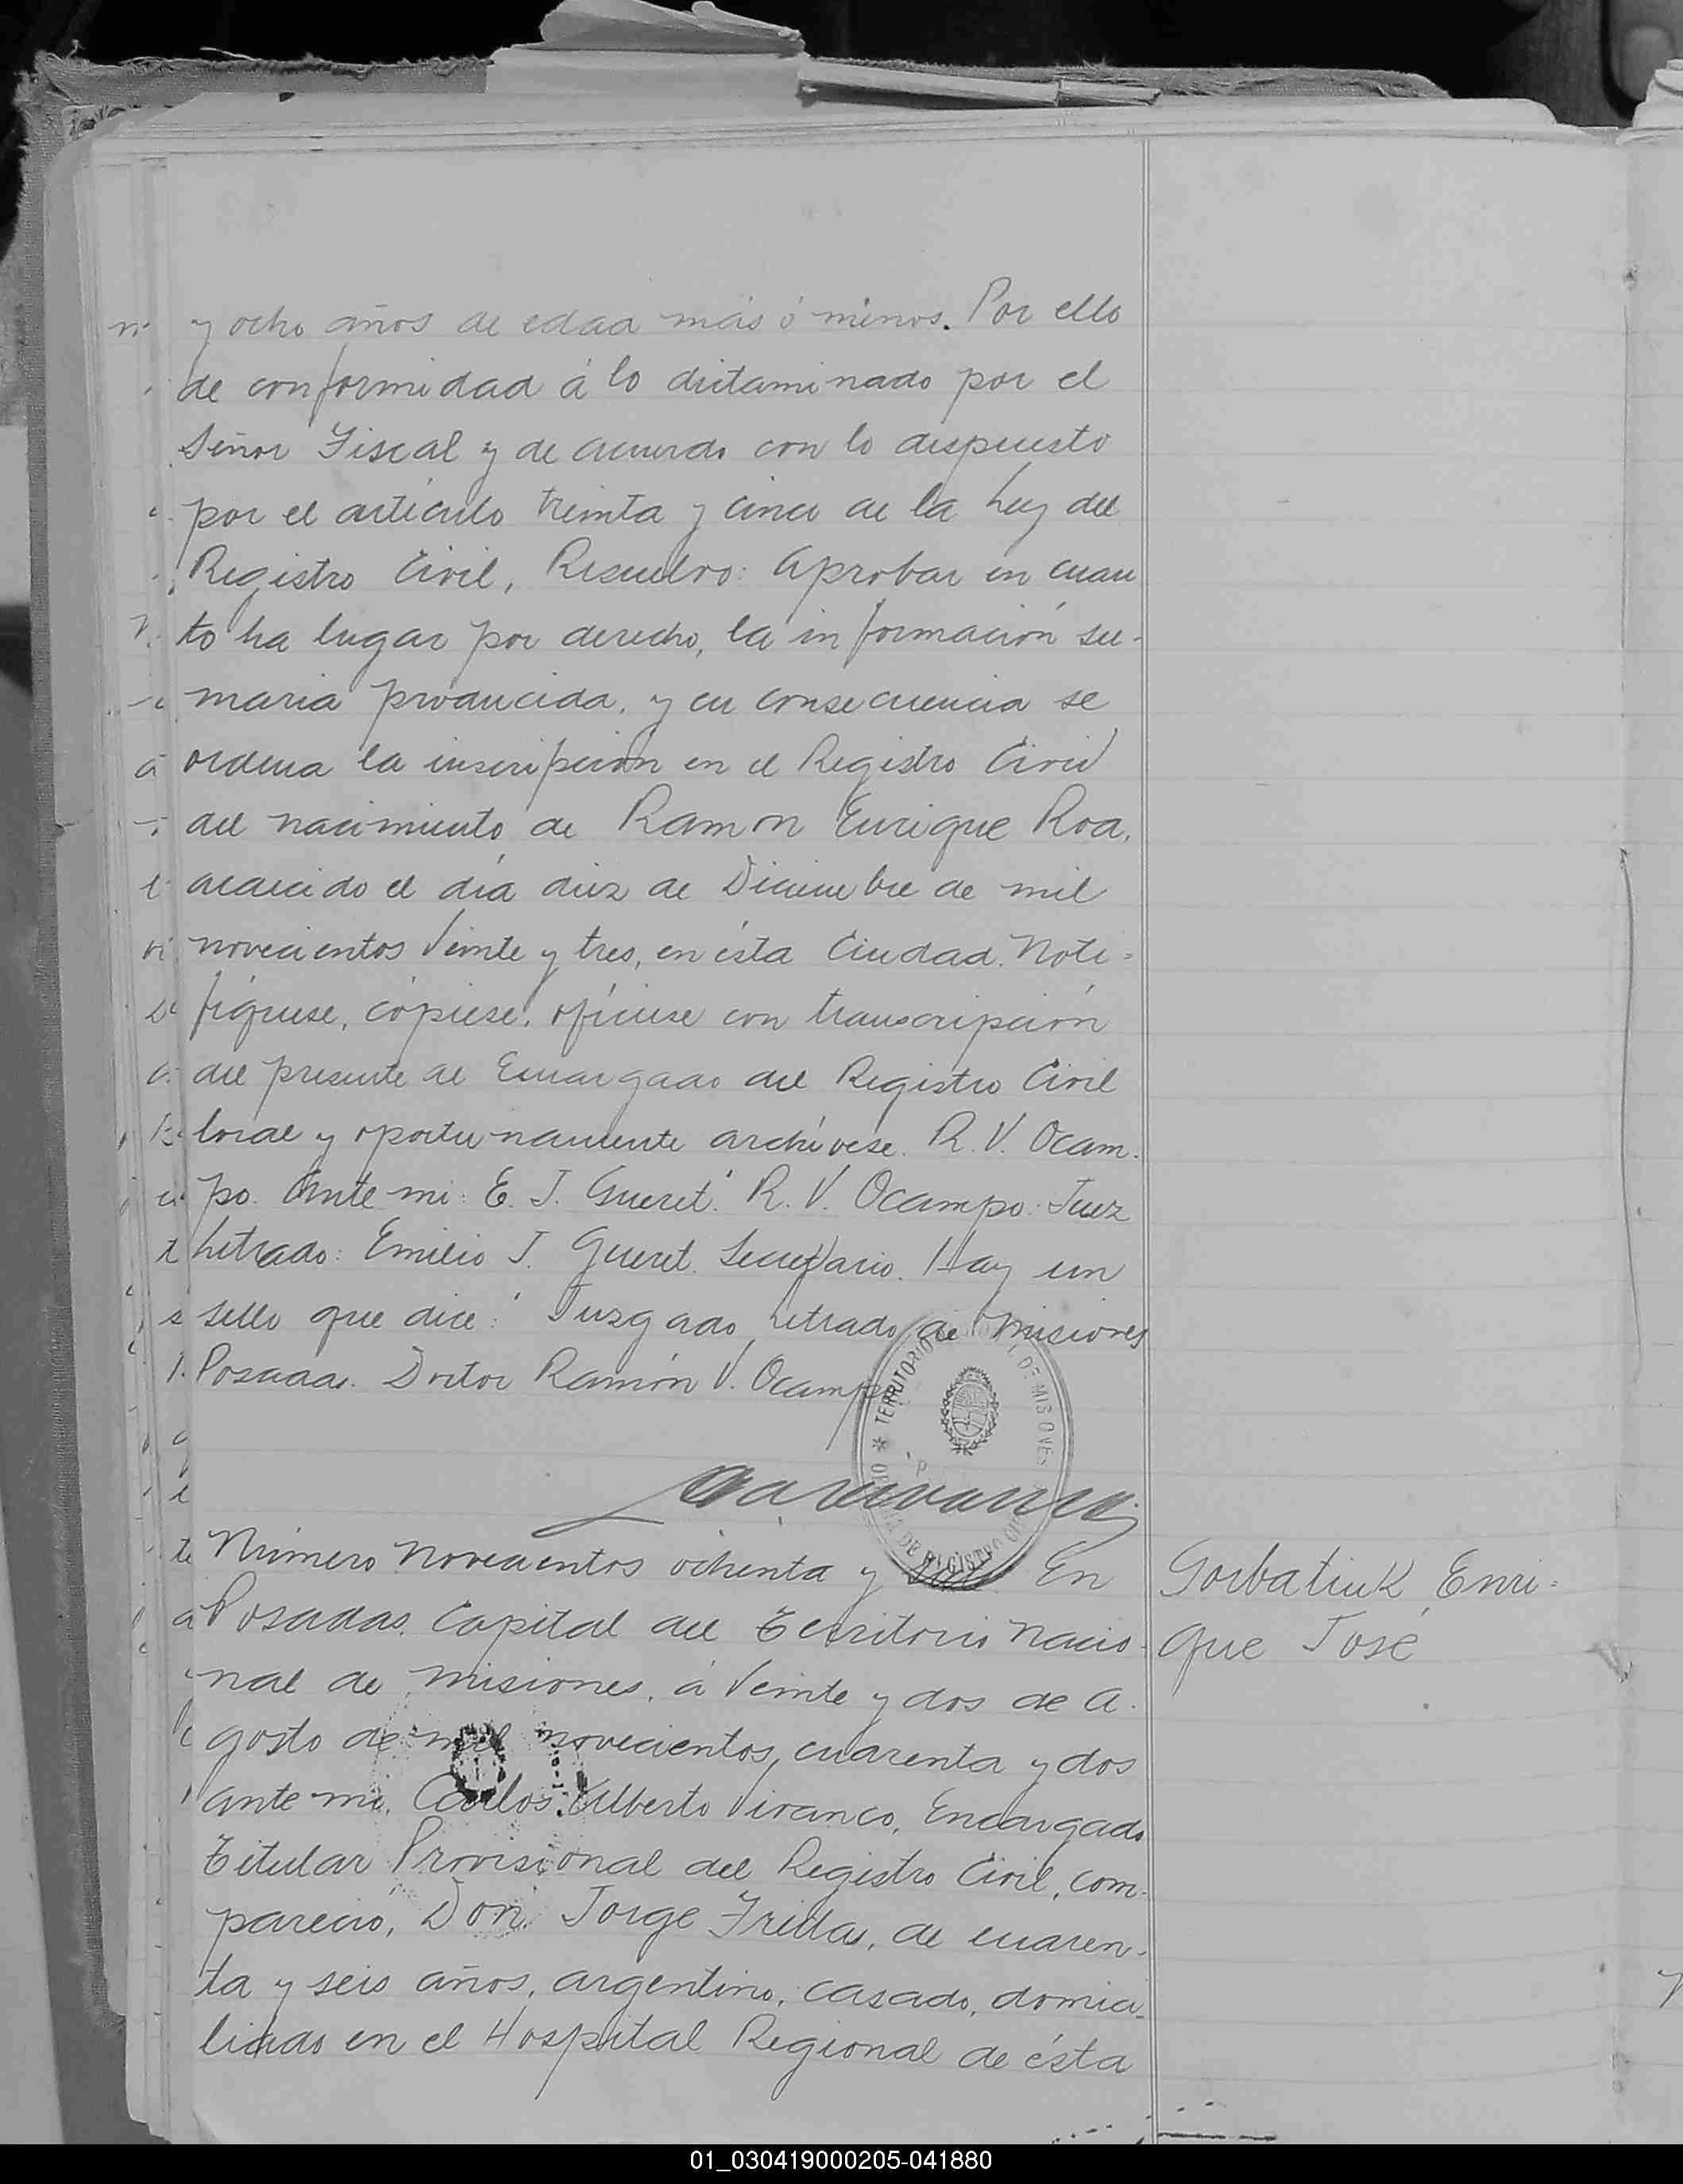 y ocho años de edad más ó menos. Por ello
de conformidad á lo dictaminado por el
Señor Fiscal y de acuerdo con lo dispuesto
por el artículo treinta y cinco de la Ley del
Registro Civil, Resuelvo: Aprobar en cuan
to ha lugar por derecho, la información su-
maria producida, y en consecuencia se
ordena la inscripción en el Registro Civil
del nacimiento de Ramon Enrique Roa,
acaecido el día diez de Diciembre de mil
novecientos veinte y tres, en ésta Ciudad. Noti=
fíquese, cópiese, ofíciese con transcripción
del presente al Encargado del Registro Civil
local y oportunamente archívese. R. V. Ocam-
po. Ante mi: E. J. Gueret." R. V. Ocampo: Juez
Letrado: Emilio J. Gueret. Secretario. Hay un
sello que dice: "Juzgado Letrado de Misiones
Posadas. Doctor Ramón V. Ocampo
TERRITORIO DE MISIONES
DE REGISTRO
Número novecientos ochenta y En
Posadas, Capital del Territorio Nacio-
nal de Misiones, á veinte y dos de A-
gosto de mil novecientos cuarenta y dos
ante mi, Carlos Alberto Vivanco, Encargado
Titular Provisional del Registro Civil, com-
pareció, Don Jorge de cuaren-
ta y seis años, argentino, casado, domici-
liado en el Hospital Regional de ésta
Gorbatiuk, Enri=
que José
01_030419000205-041880